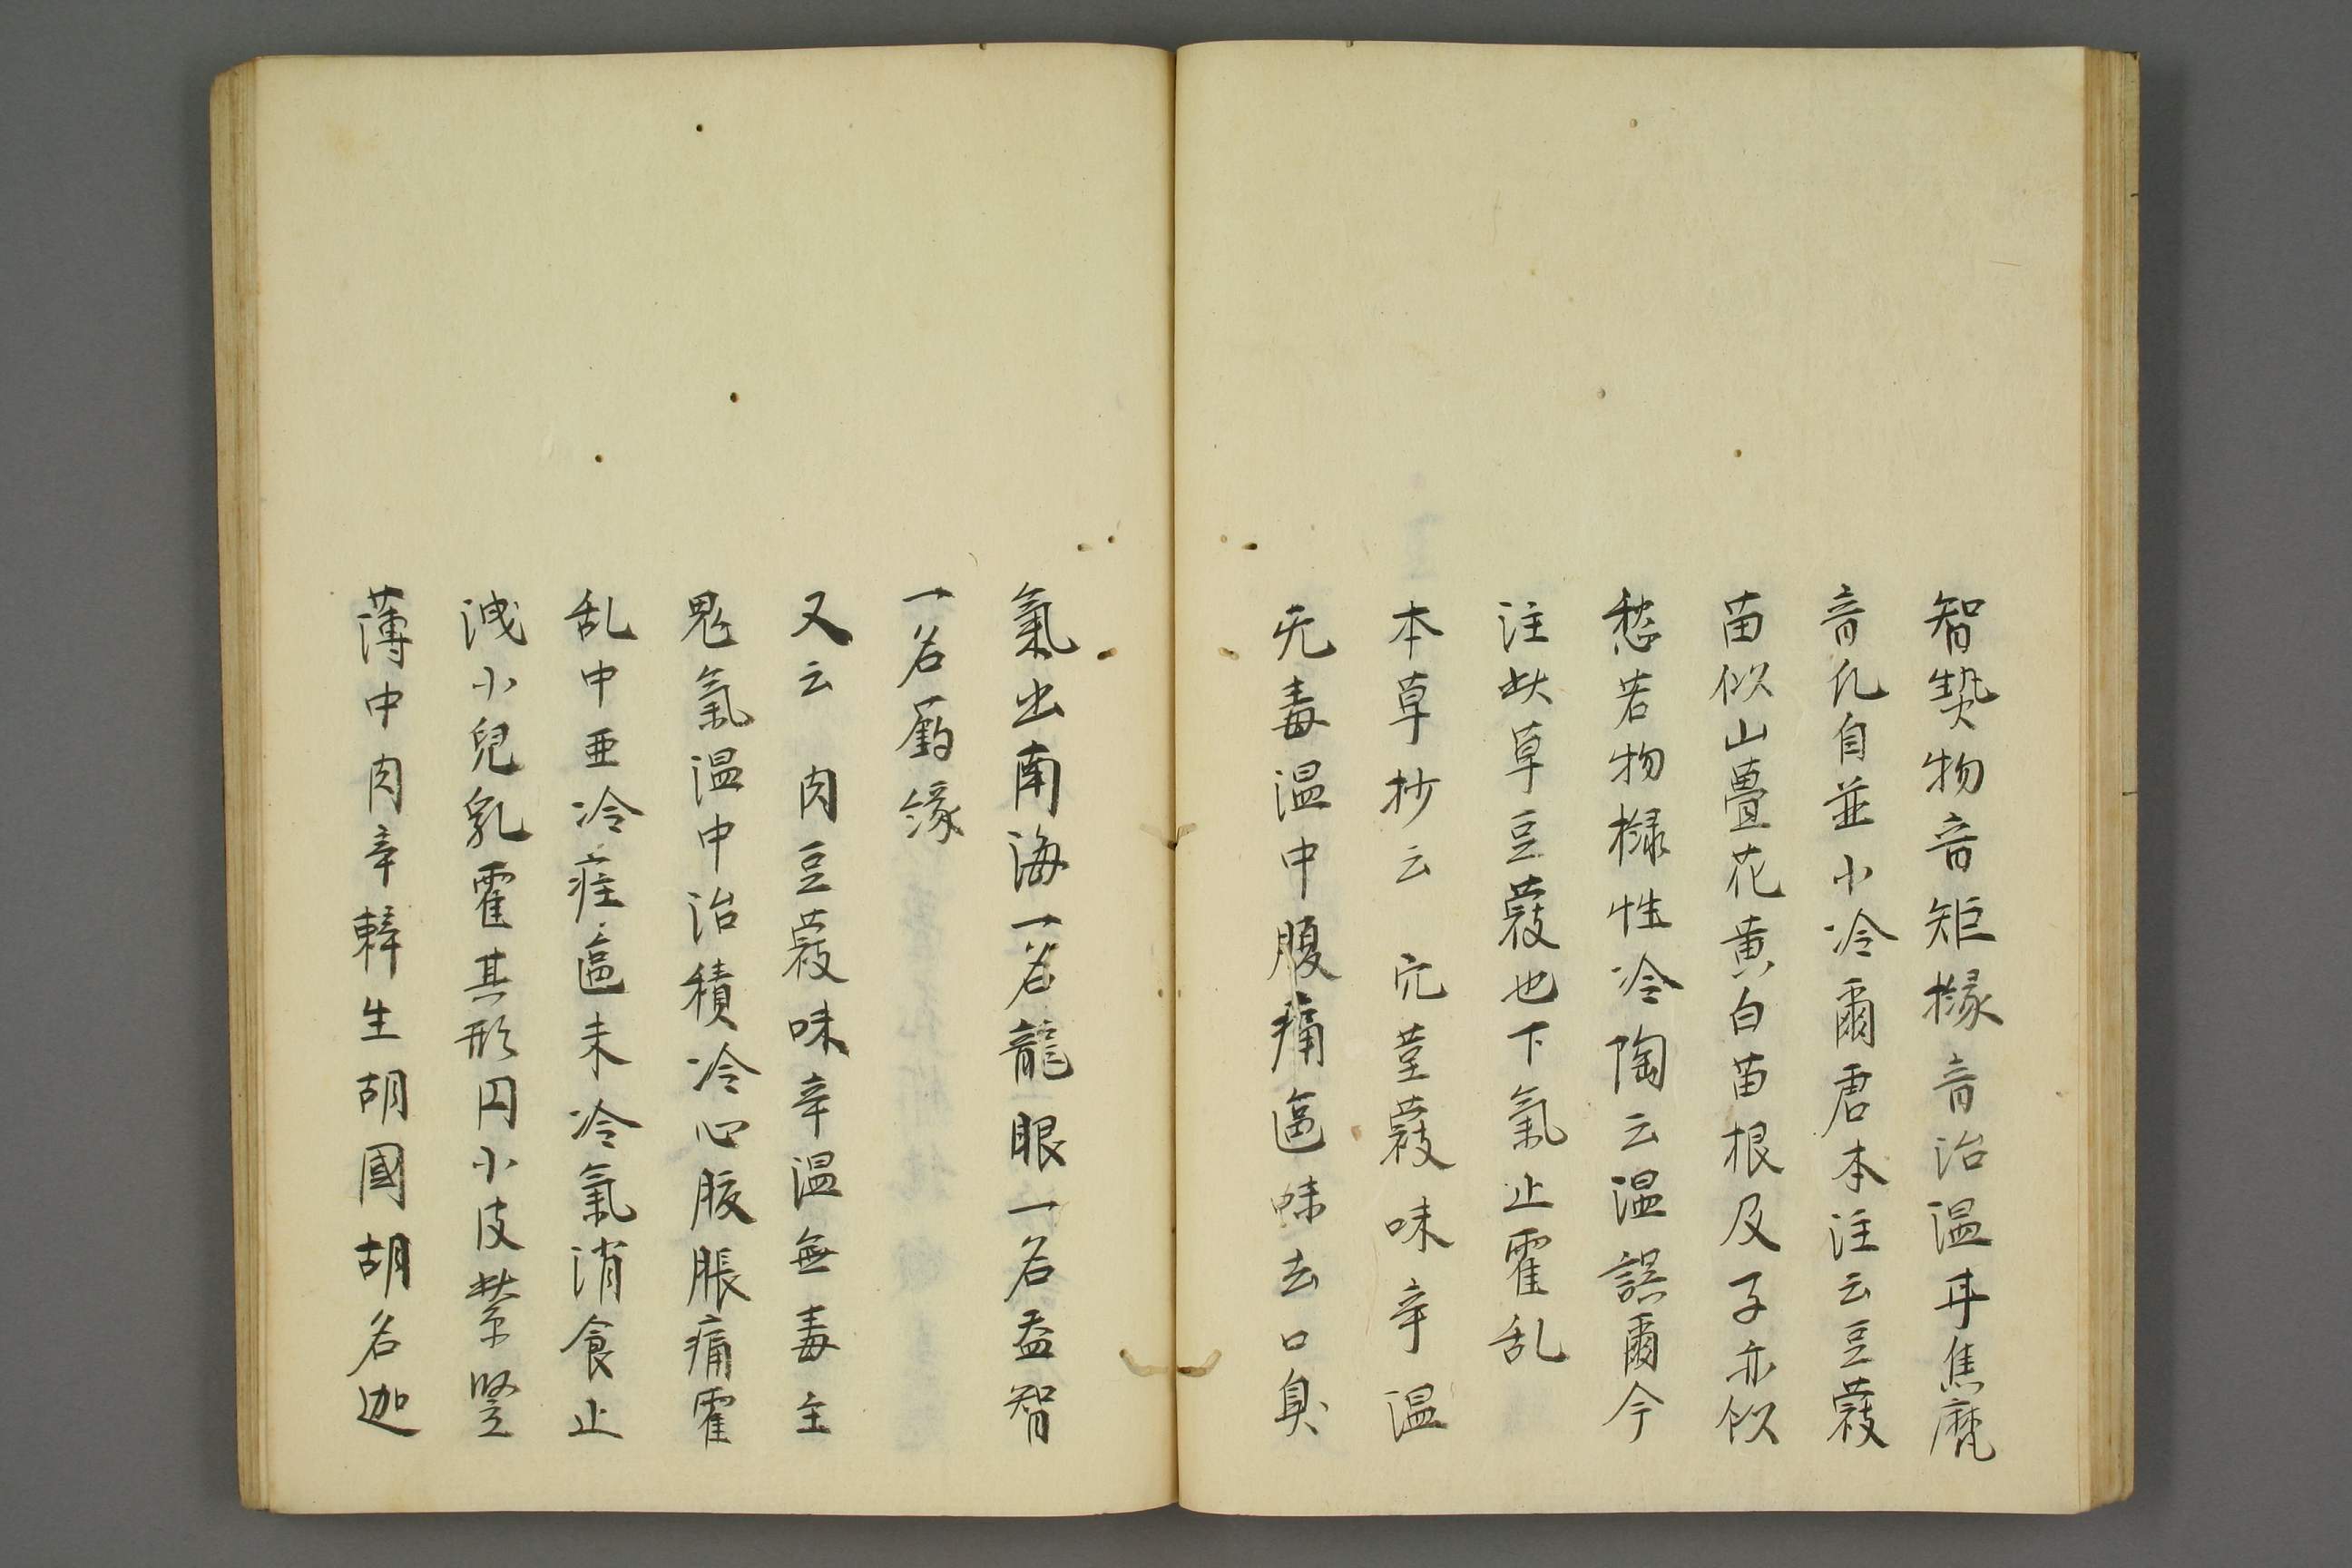 智贄物音矩櫞音治温丼焦麾
音凡自並小冷爾君本注云豆蔲
苗似山畺花黄白苗根及子亦似
愁若物椽性冷陶云温誤爾今
注此草豆蔲也下氣止霍乱
本草抄云 宍荳蔲味辛温
无毒温中腹痛區味去口臭
氣出南海一名龍眼一名益智
一名縁
又云 肉豆蔲味辛温無毒主
鬼氣温中治積冷心腹脹痛霍
乱中亜冷疰區未冷氣消食止
洩小兒乳霍其形円小皮紫竪
薄中肉辛生胡國胡名迦